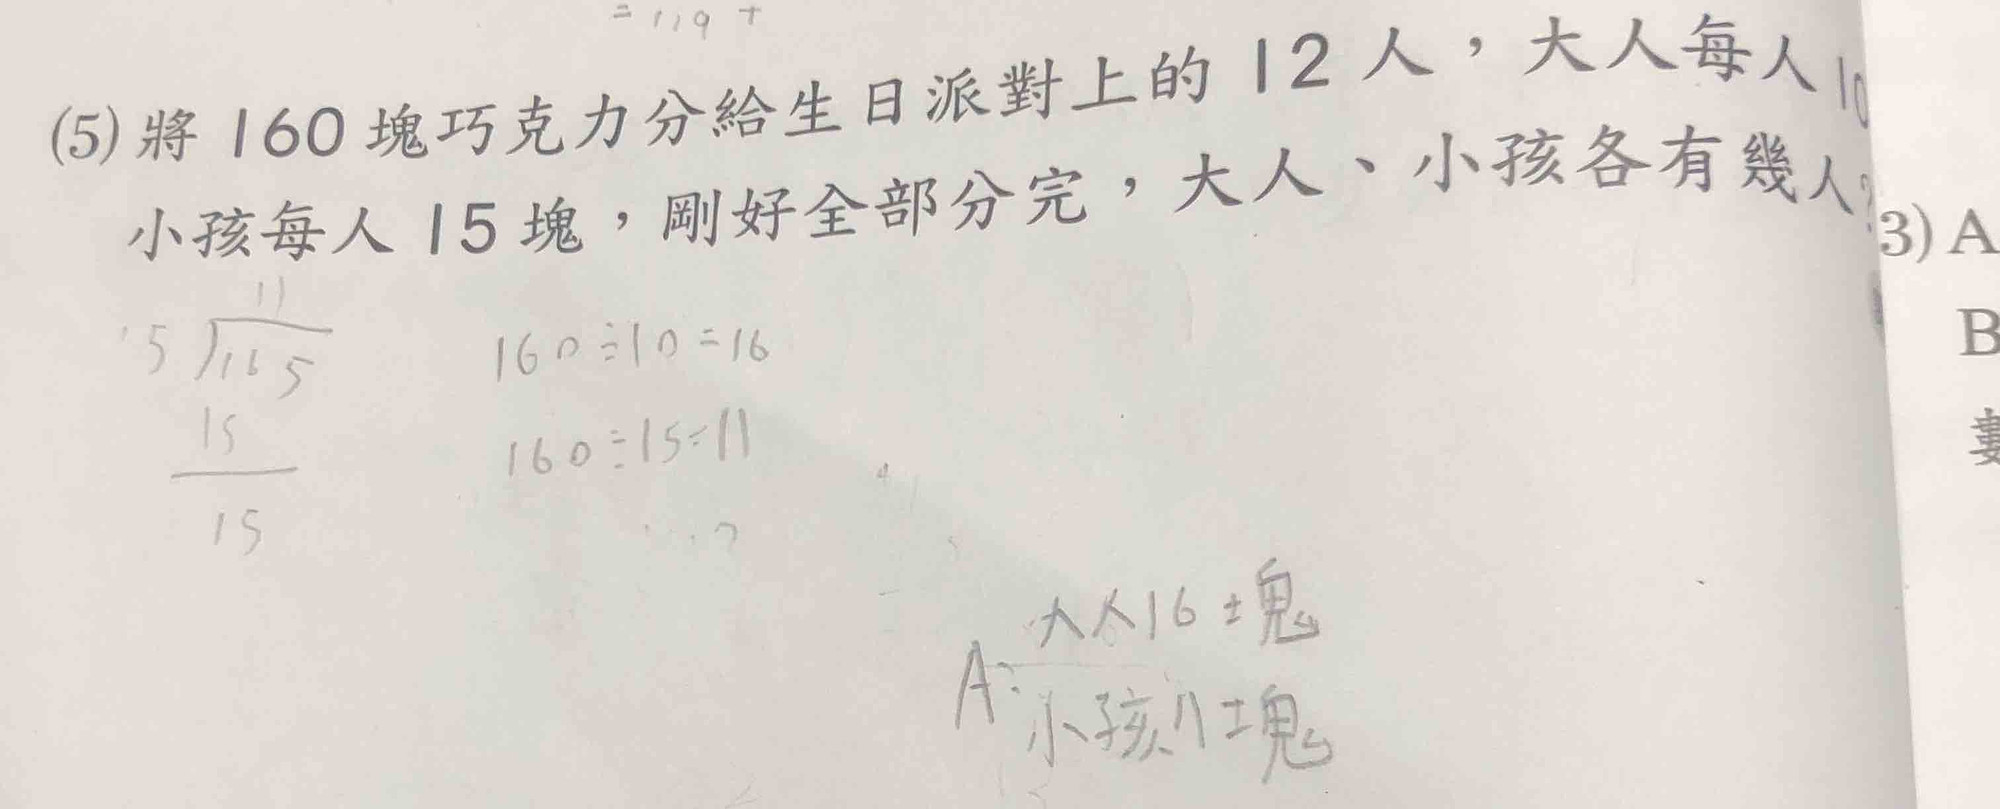 = 119 +
(5) 將 160 塊巧克力分給生日派對上的 12 人，大人每人 10
小孩每人 15 塊，剛好全部分完，大人、小孩各有幾人?
11
15 ) 165
15
15
160÷10=16
160÷15=11
A: 大人16塊
小孩11塊
3) A
B